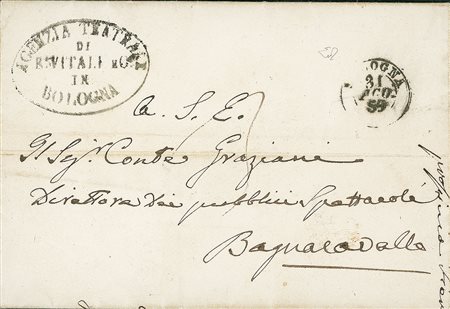 AGENZIA TEATRALE
DI
E. VITALI E C.
IN
BOLOGNA
BOLOGNA
31
AGO
A. S. E.
Il Sigr. Conte Graziani
Direttore Dei pubblici Spettacoli
Bagnacavallo